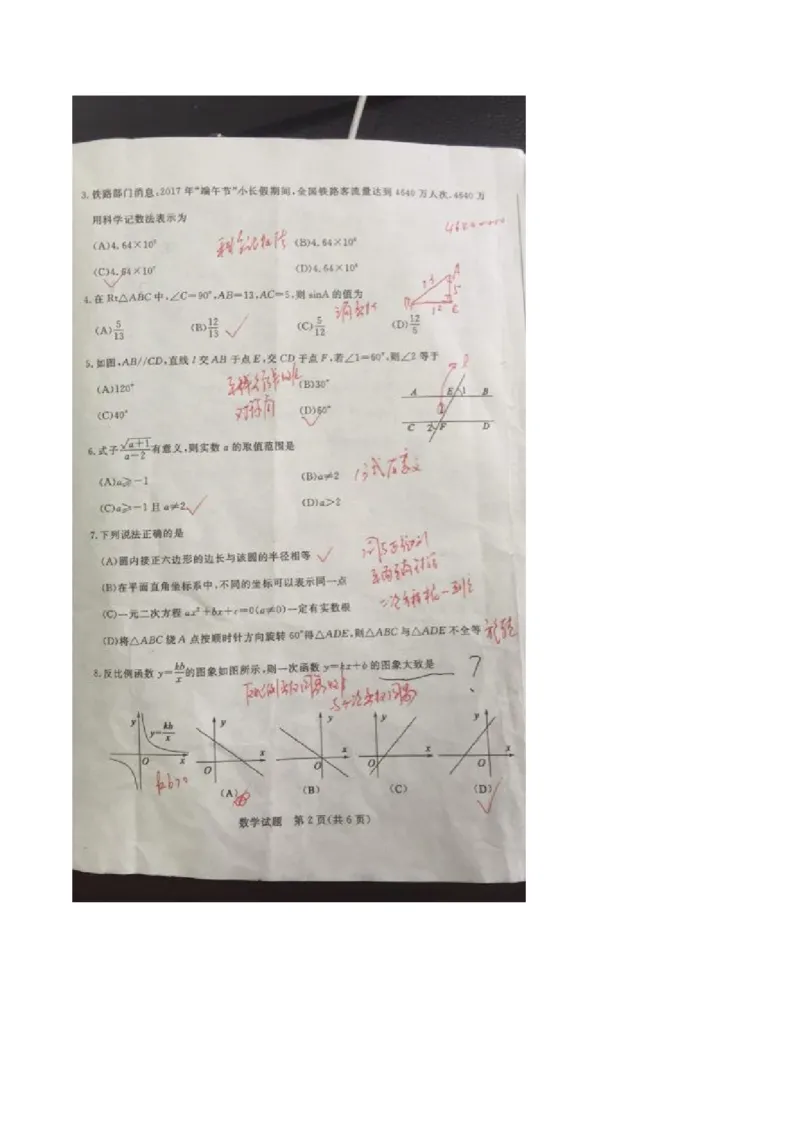 3.铁路部门消息,2017年"端午节"小长假期间,全国铁路客流量达到4640万人次.4640万
用科学记数法表示为
(A)4.64×10⁵ (B)4.64×10⁶
(C)4.64×10⁷ (D)4.64×10⁸
科学记数法
4.在Rt△ABC中,∠C=90°,AB=13,AC=5,则sinA的值为
(A)5/13 (B)12/13 (C)5/12 (D)12/5
13 A 5 12 C
5.如图,AB//CD,直线l交AB于点E,交CD于点F,若∠1=60°,则∠2等于
(A)120° (B)30°
(C)40° (D)60°
A E 1 B
C 2 F D
6.式子√(a+1)/(a-2)有意义,则实数a的取值范围是
(A)a≥-1 (B)a≠2
(C)a≥-1且a≠2 (D)a>2
7.下列说法正确的是
(A)圆内接正六边形的边长与该圆的半径相等
(B)在平面直角坐标系中,不同的坐标可以表示同一点
(C)一元二次方程ax²+bx+c=0(a≠0)一定有实数根
(D)将△ABC绕A点按顺时针方向旋转60°得△ADE,则△ABC与△ADE不全等
8.反比例函数y=kb/x的图象如图所示,则一次函数y=kx+b的图象大致是
?
y y=kb/x O x
y O x
y O x
y O x
y O x
kb>0
(A) (B) (C) (D)
数学试题 第2页(共6页)